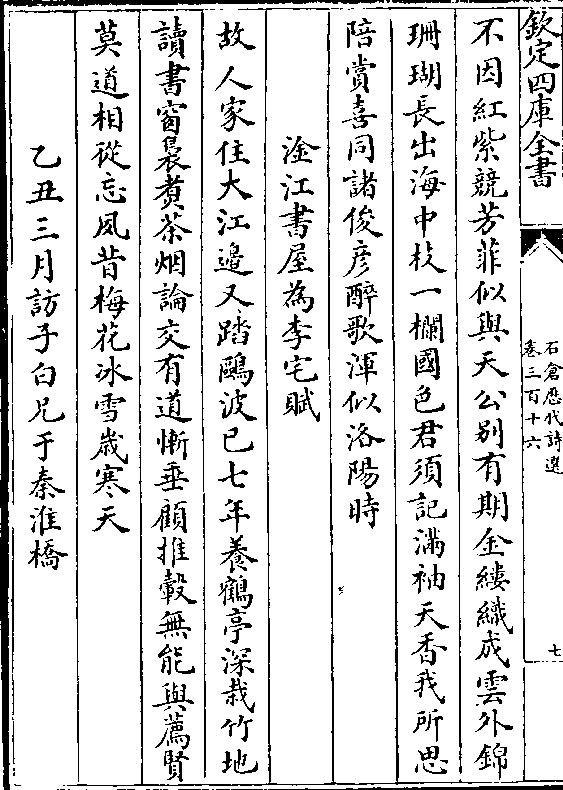 欽定四庫全書
石倉歷代詩選
卷三百十六
七
不因紅紫競芳菲似與天公别有期金縷織成雲外錦
珊瑚長出海中枝一欄國色君須記滿袖天香我所思
陪賞喜同諸俊彦醉歌渾似洛陽時
淦江書屋為李宅賦
故人家住大江邉又踏鷗波已七年養鶴亭深栽竹地
讀書窗裊煑茶烟論交有道慚垂顧推轂無能與薦賢
莫道相從忘夙昔梅花冰雪歳寒天
乙丑三月訪子白兄于秦淮橋